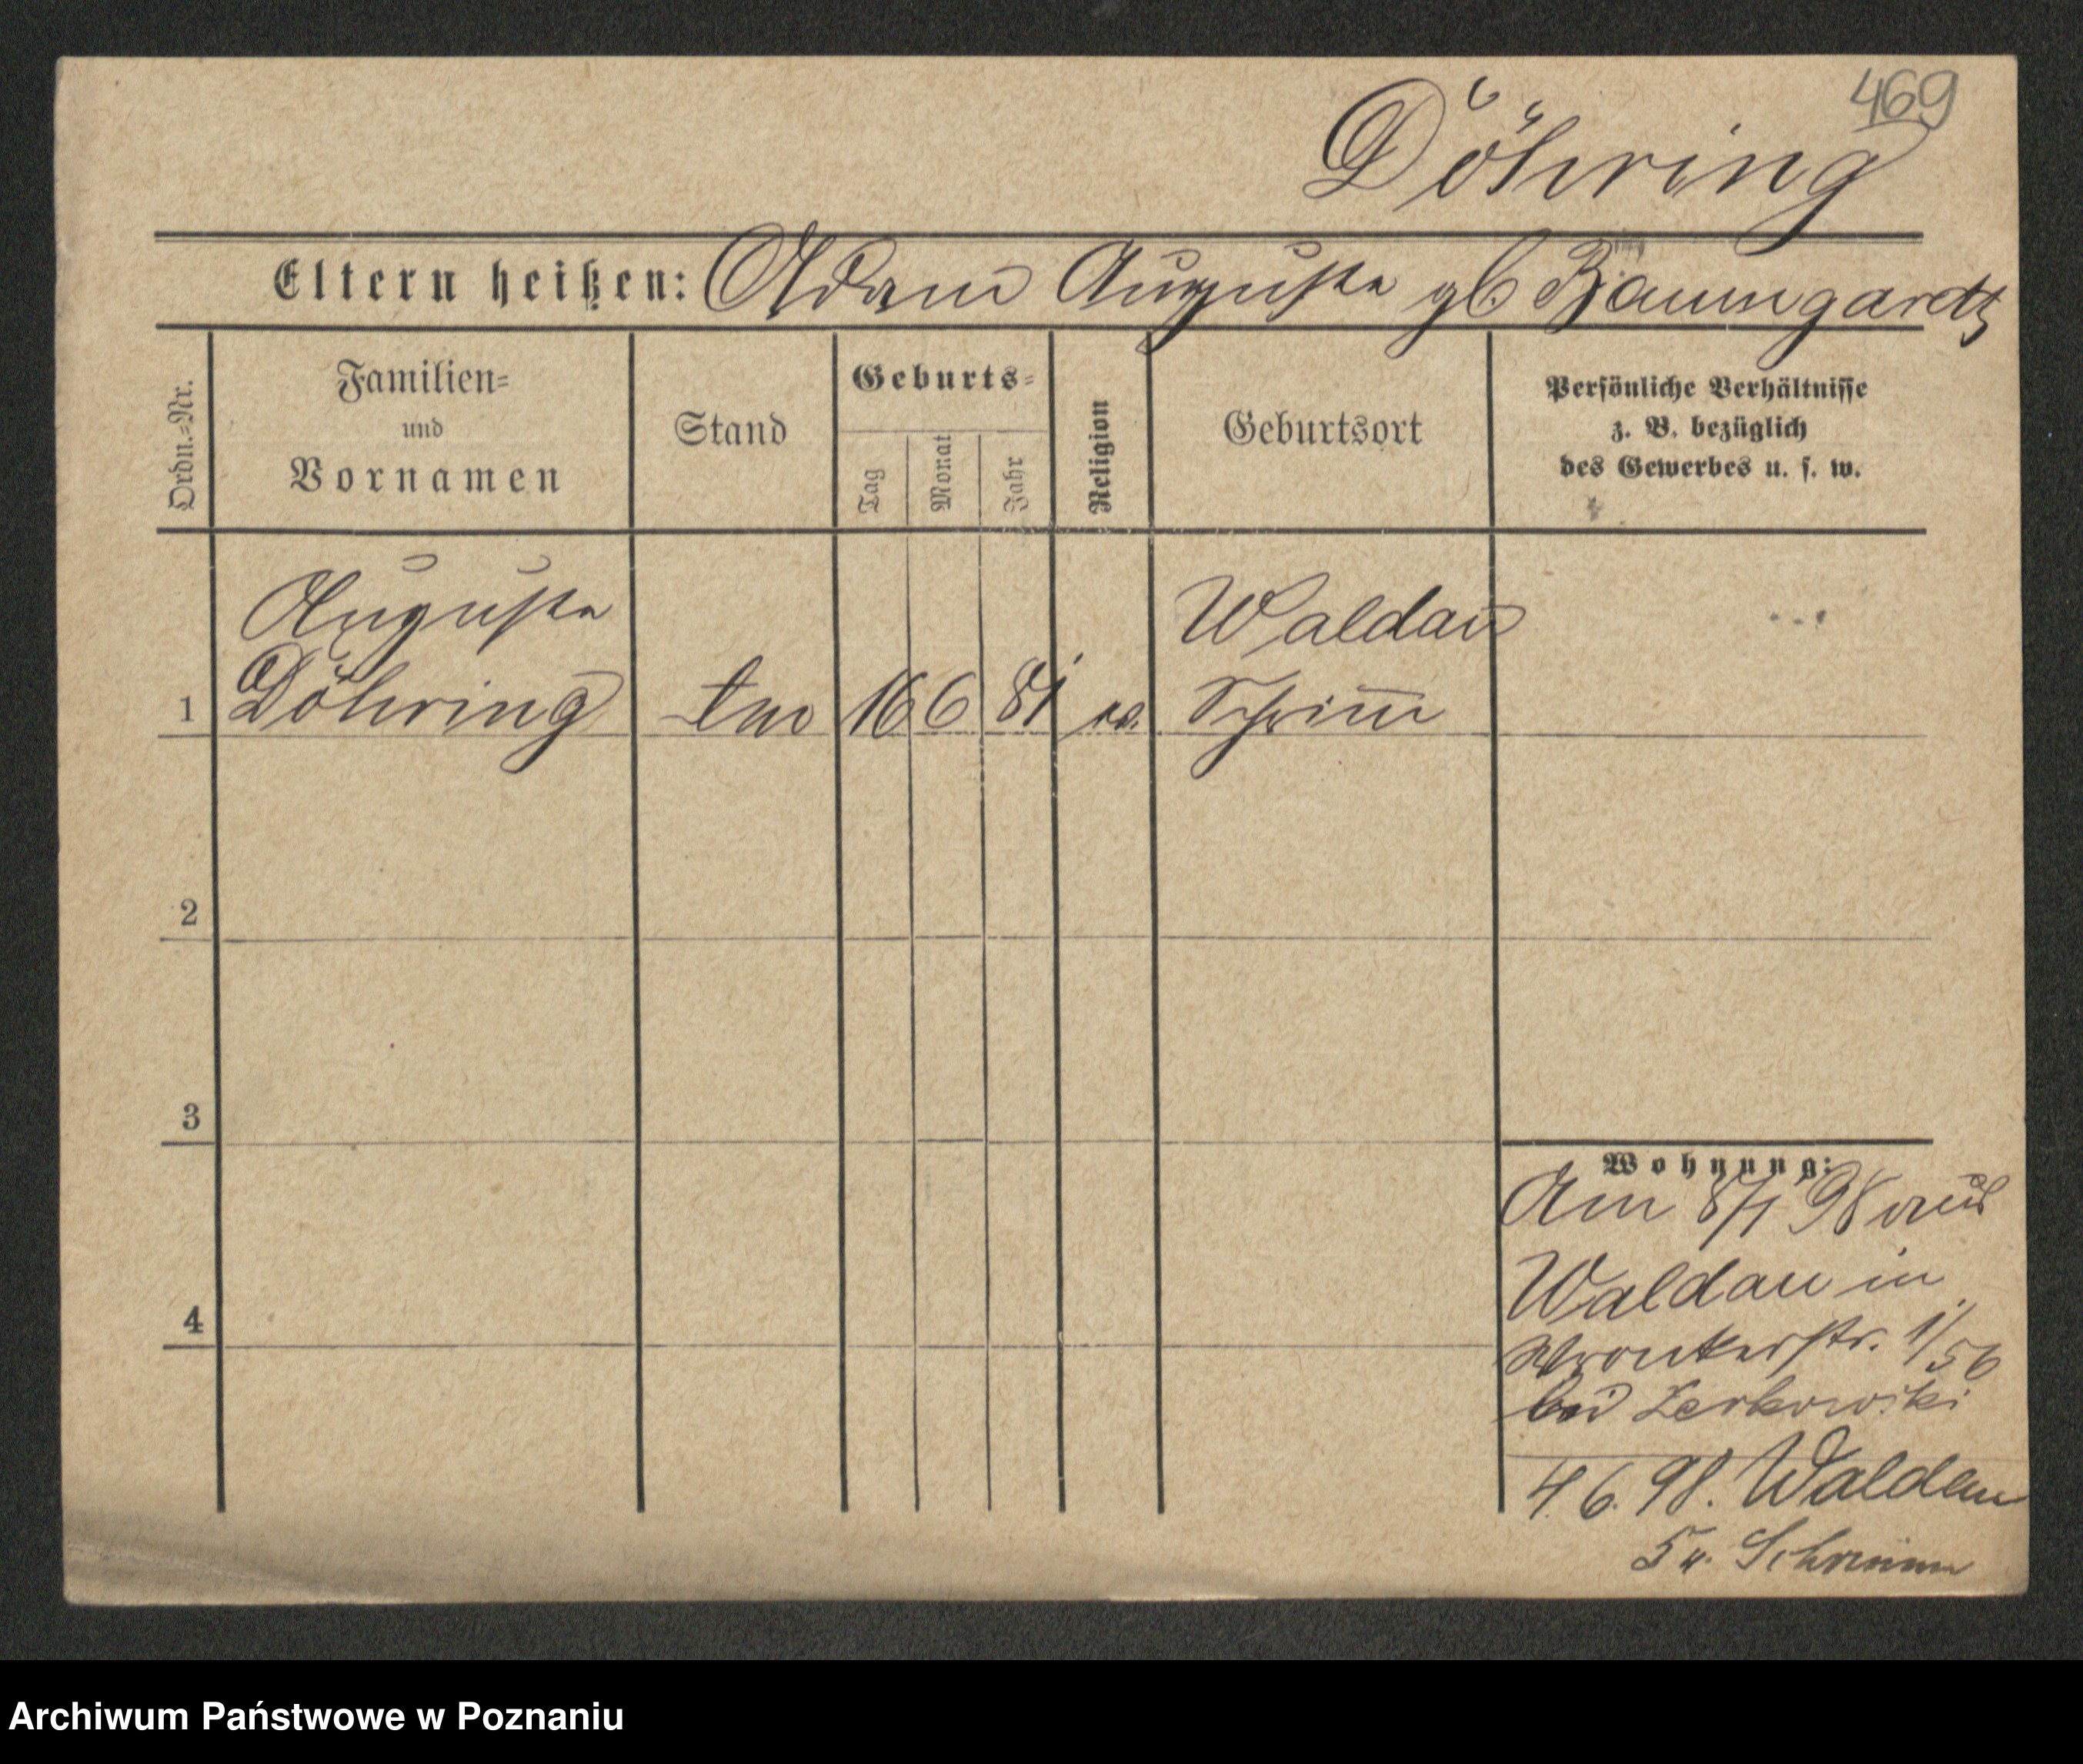 469
Döhring
Eltern heißen: Adam Auguste gb Baumgardt
Ordn.-Nr.
Familien-
und
Vornamen
Stand
Geburts-
Tag
Monat
Jahr
Religion
Geburtsort
Persönliche Verhältnisse
z. B. bezüglich
des Gewerbes u. s. w.
Auguste
Döhring
1
16 6 81
ev.
Waldau
Schrim̅
2
3
4
Wohnung:
Am 8/1 98 aus
Waldau in
Wronkerstr. 1/56
bei Zerkowski
4.6.98. Waldau
Schrimm
Archiwum Państwowe w Poznaniu